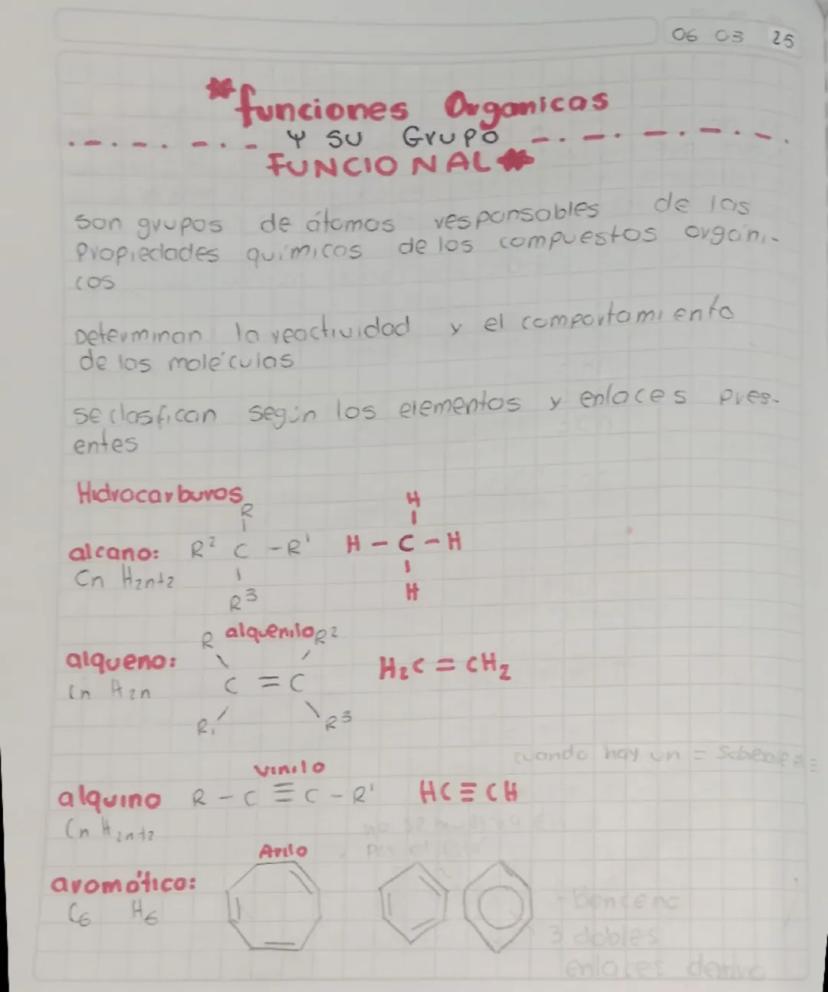 06 03 25
*funciones Organicas
Y SU GRUPO
FUNCIONAL*
son grupos de átomos responsables de las
Propiedades químicas de los compuestos orgáni-
cos
Determinan la reactividad y el comportamiento
de las moléculas
se clasfican según los elementos y enlaces pres-
entes
Hidrocarburos
R
alcano: R² C -R' H - C - H
Cn H2n+2
R³
H
H
R alquenilo R²
alqueno: C = C H2C = CH2
Cn H2n
R' R³
cuando hay un =
vinilo
alquino R - C ≡ C - R' HC ≡ CH
Cn H2n+2
Arilo
aromático:
C6 H6
Benceno
3 dobles
enlaces